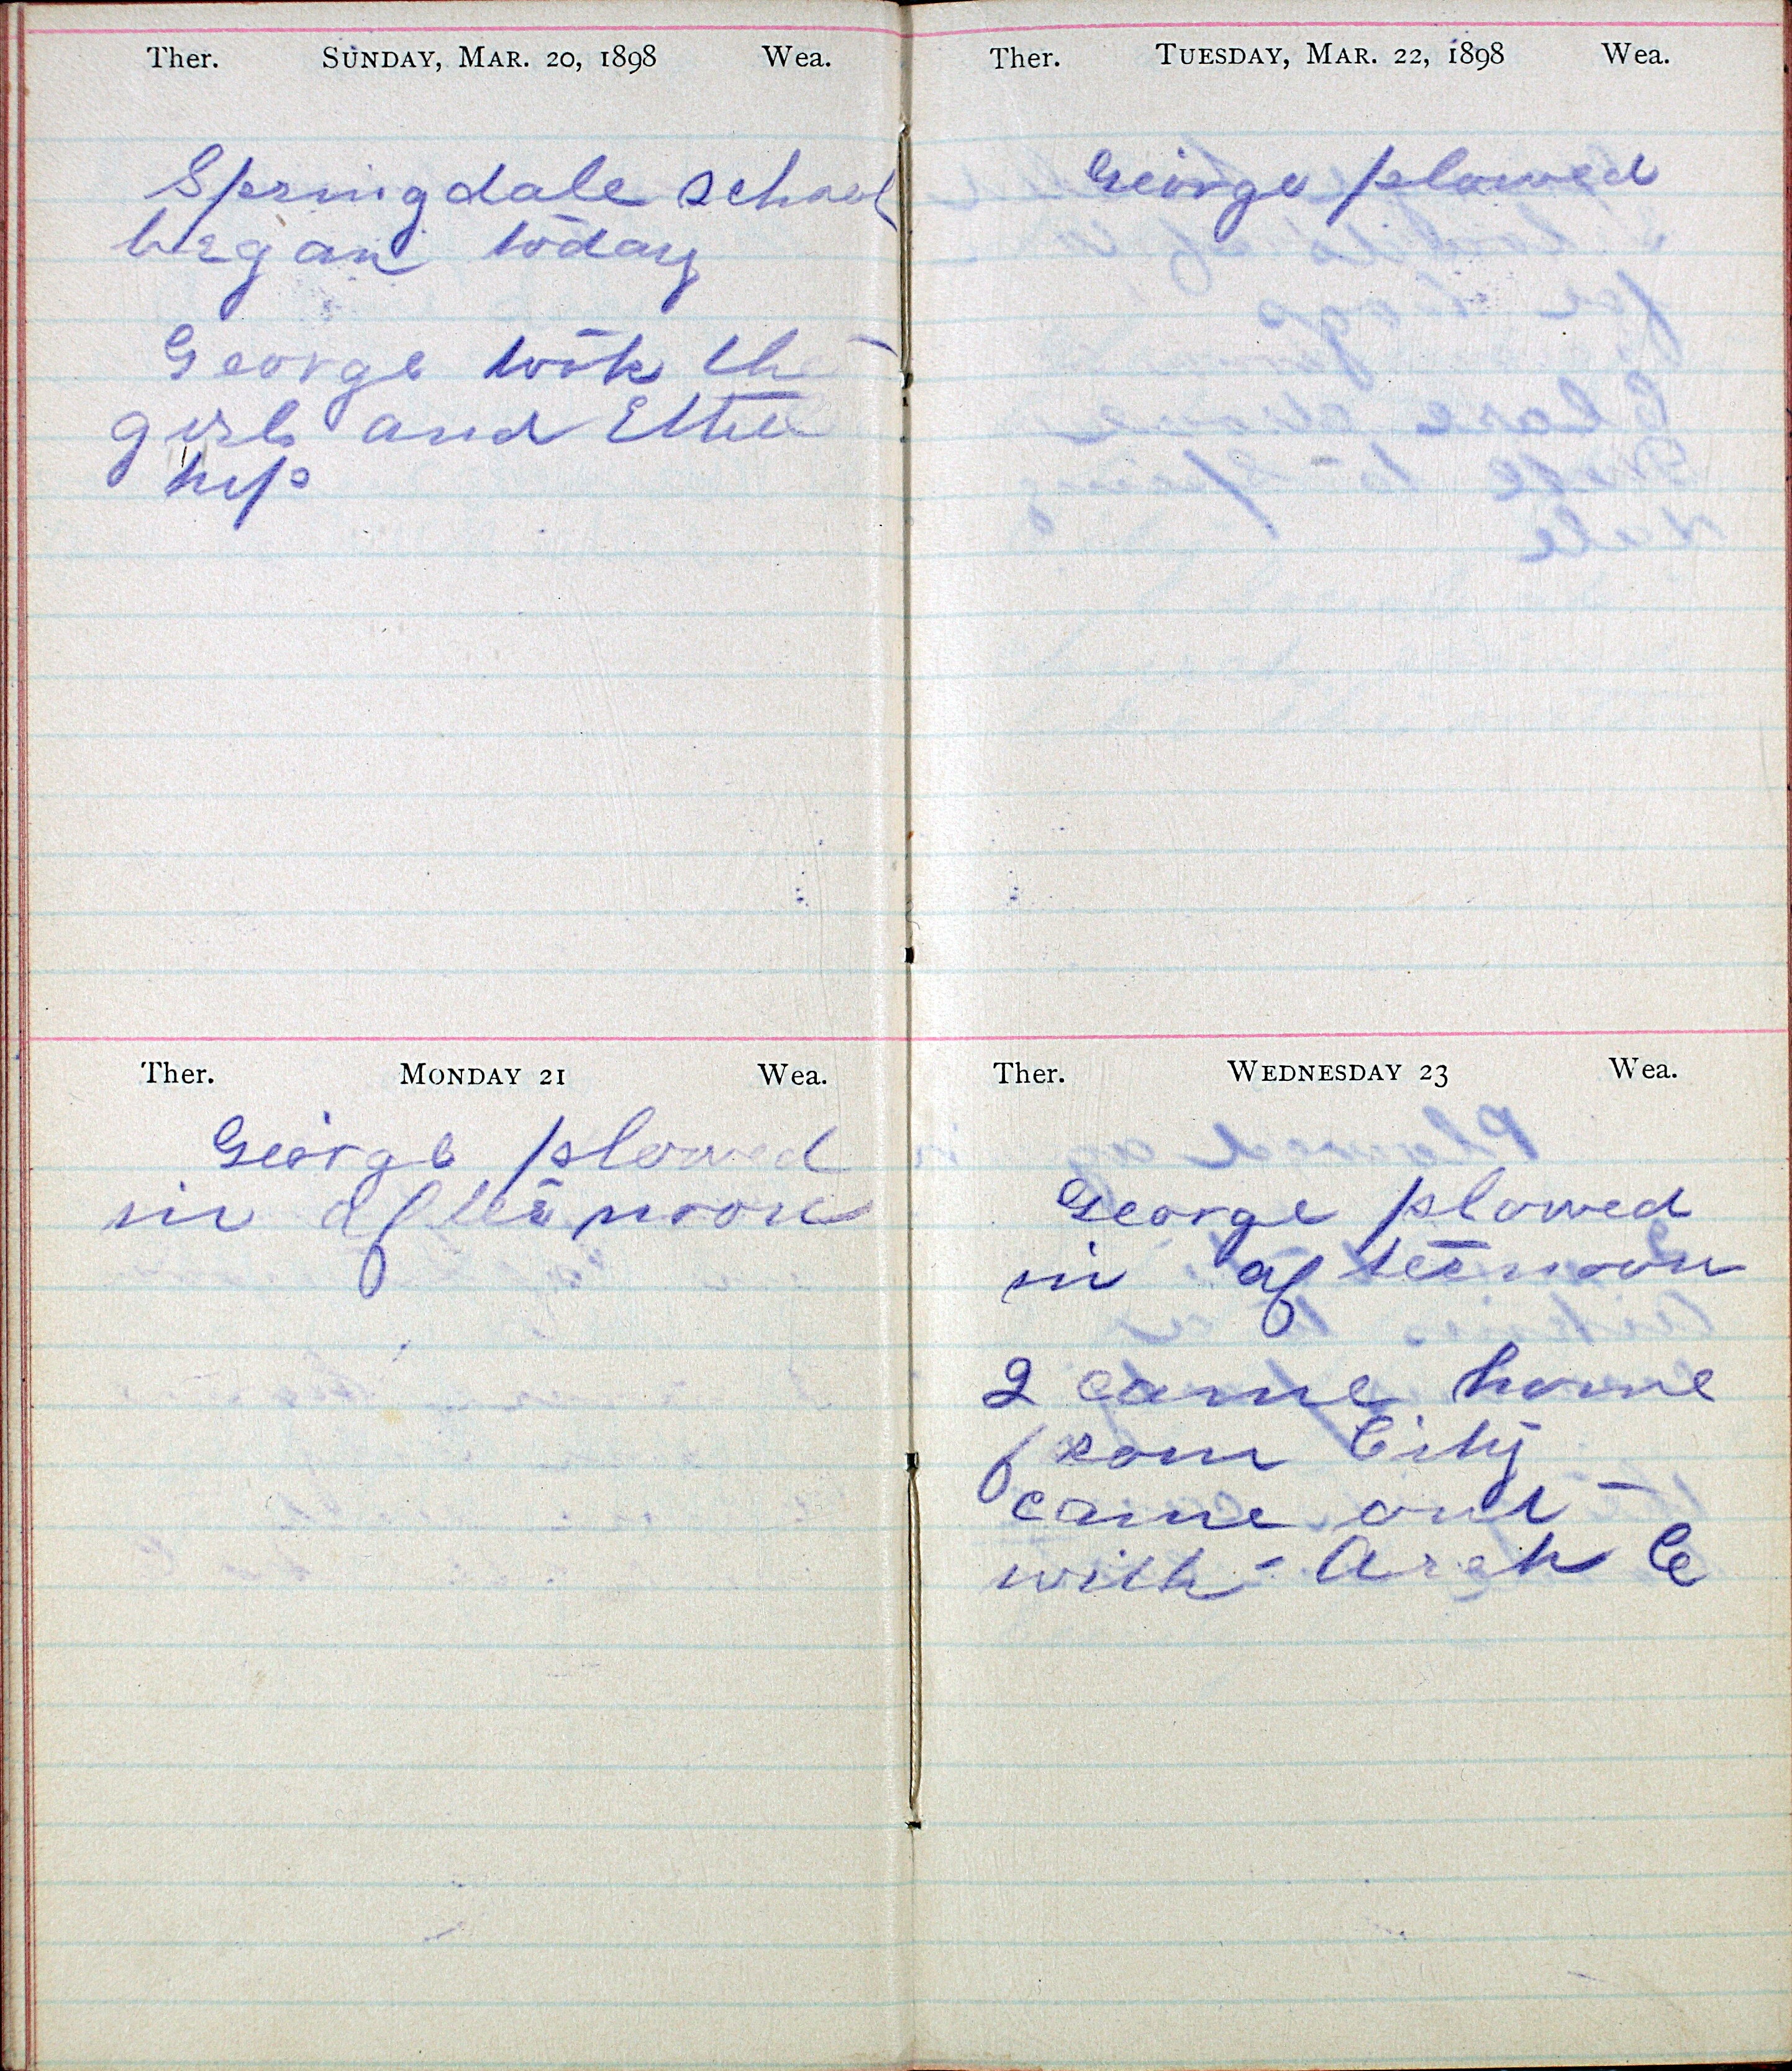 Ther. SUNDAY, MAR. 20, 1898 Wea.
Springdale school
began today
George took the
girls and Ettie
up
Ther. MONDAY 21 Wea.
George plowed
in afternoon
Ther. TUESDAY, MAR. 22, 1898 Wea.
George plowed
Ther. WEDNESDAY 23 Wea.
George plowed
in afternoon
I came home
from City
came out
with Arch C